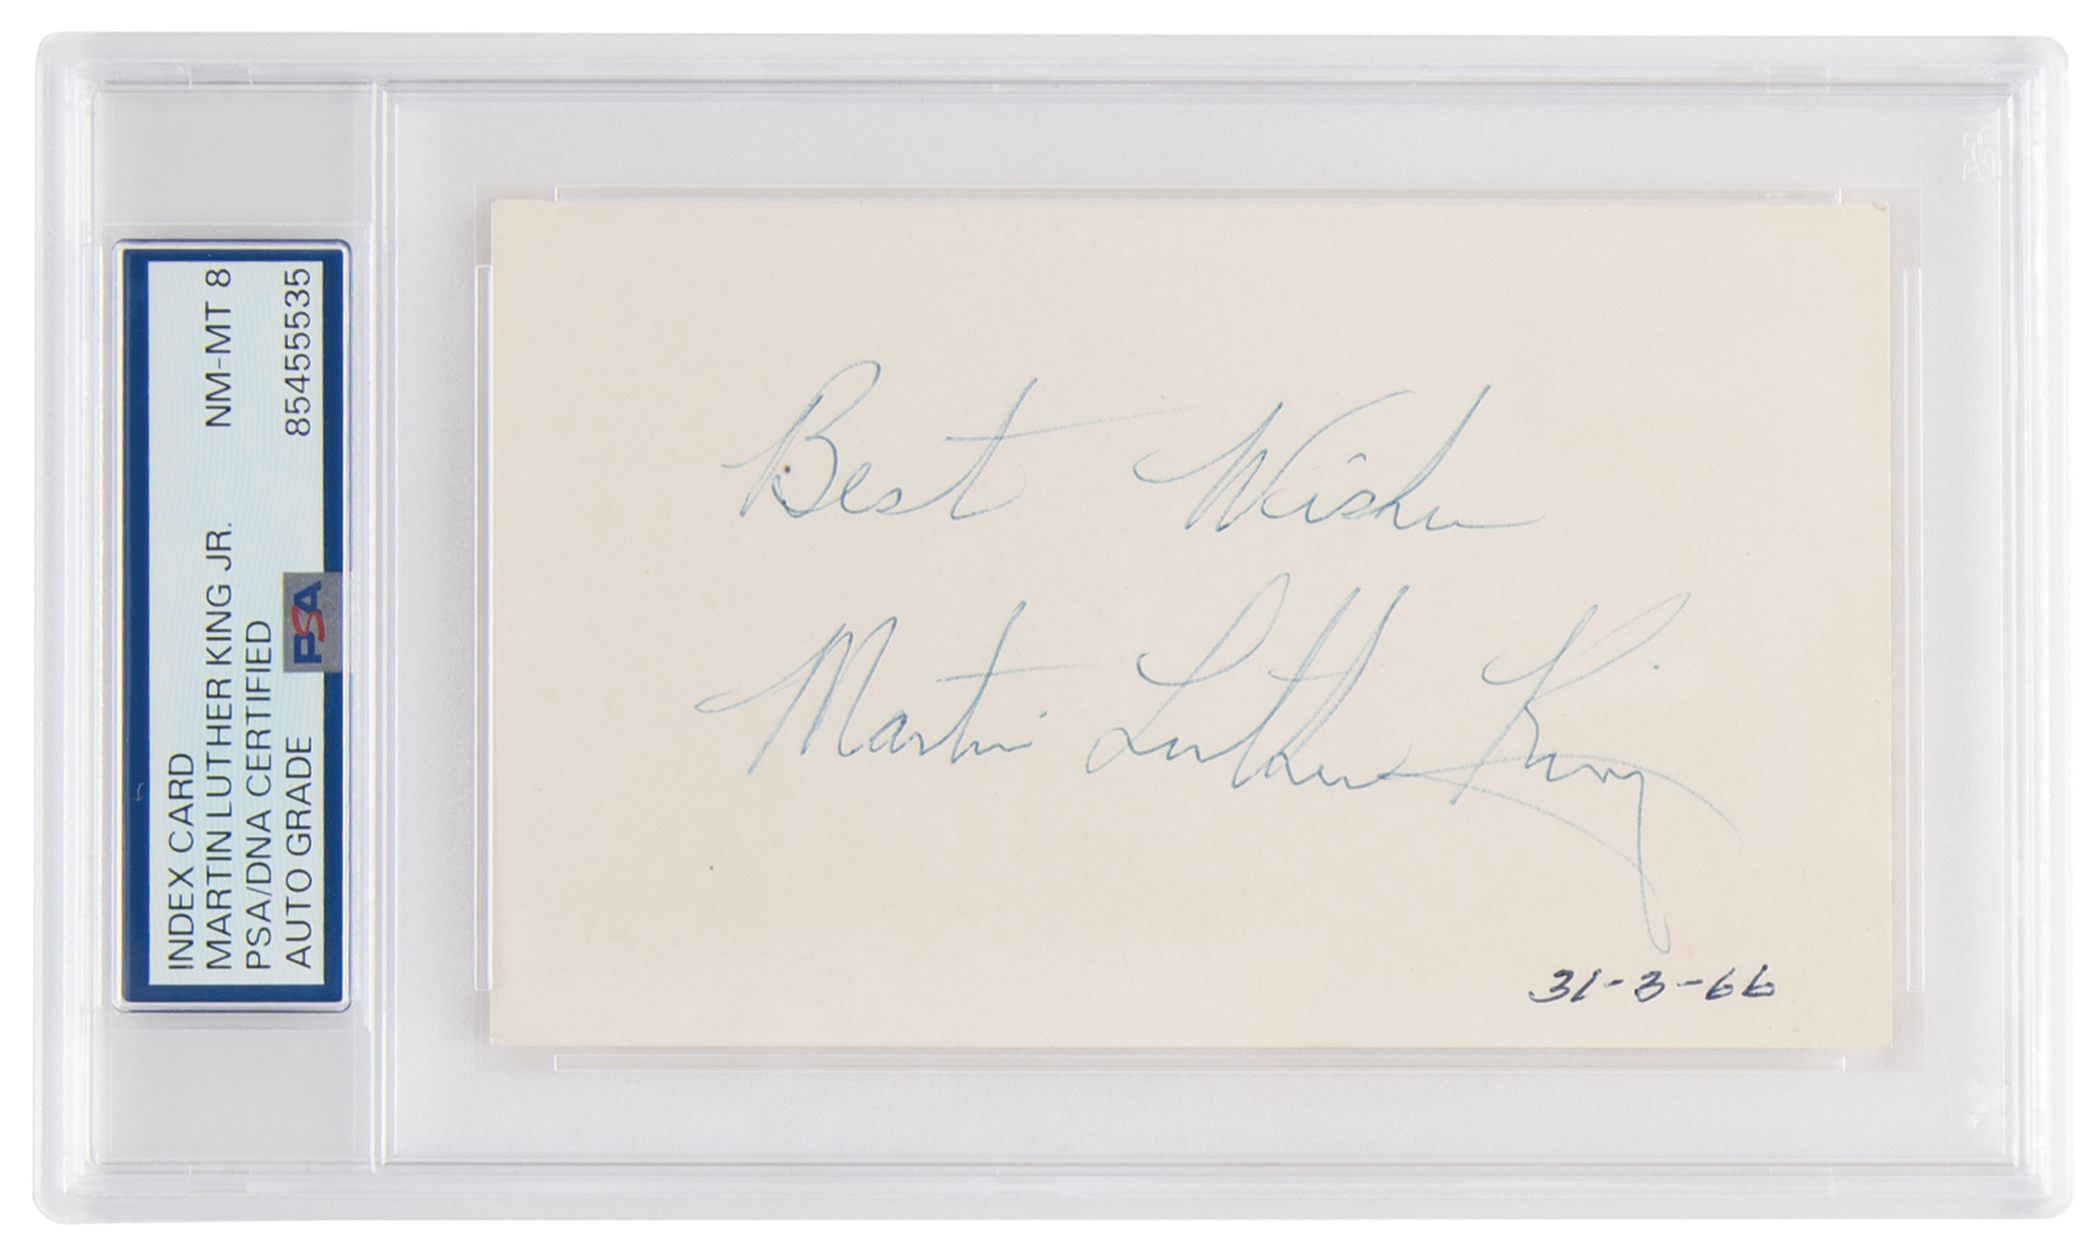 INDEX CARD
MARTIN LUTHER KING JR. NM-MT 8
PSA/DNA CERTIFIED
AUTO GRADE 85455535
PSA
Best Wishes
Martin Luther King
31-3-66